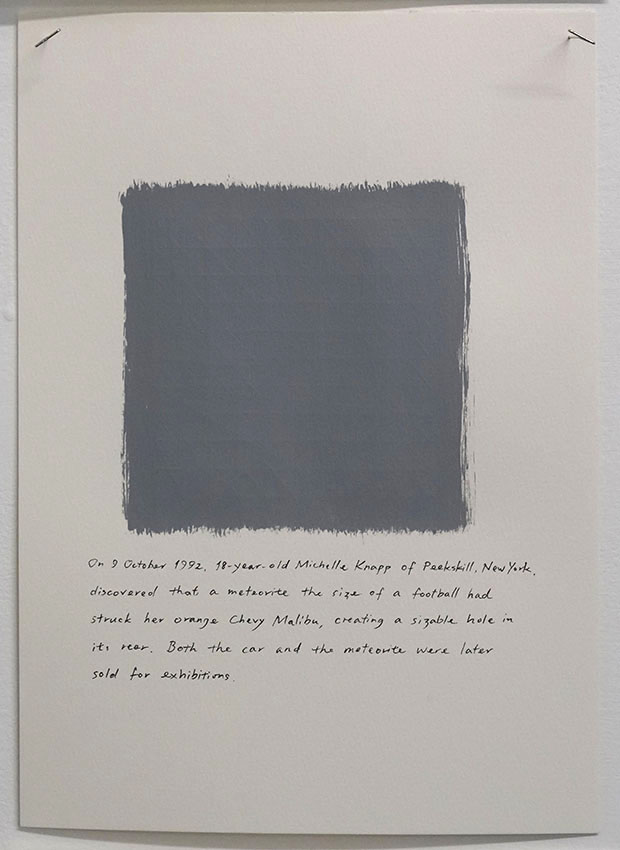 On 9 October 1992, 18-year-old Michelle Knapp of Peekskill, New York,
discovered that a meteorite the size of a football had
struck her orange Chevy Malibu, creating a sizable hole in
its rear. Both the car and the meteorite were later
sold for exhibitions.